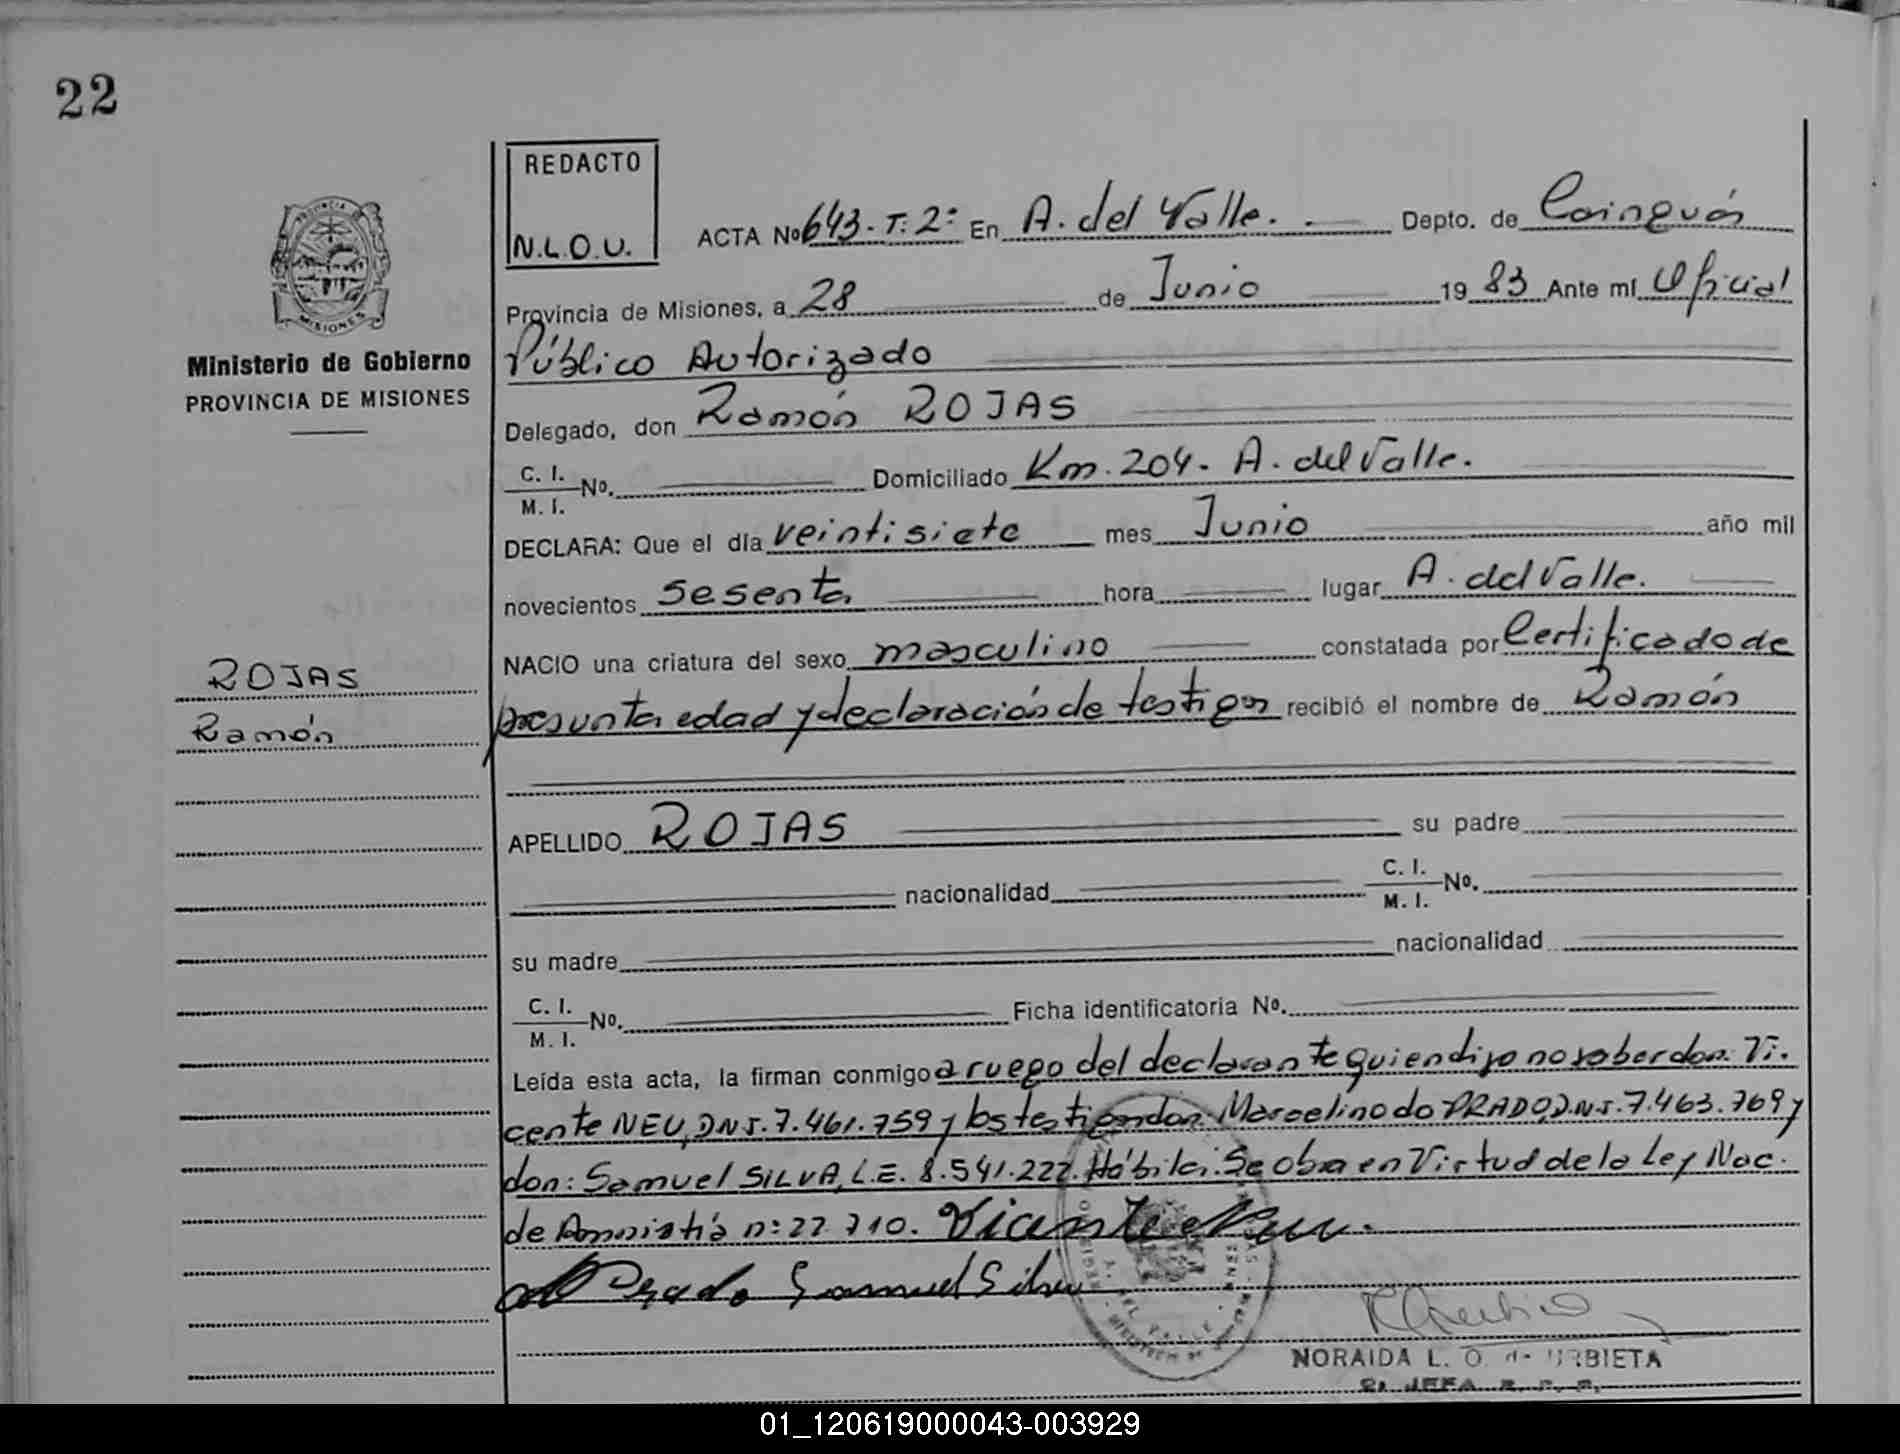 22
REDACTO
N.L.O.U.
ACTA No 643. T: 2º En A. del Valle. Depto. de Cainguás
PROVINCIA
MISIONES
Provincia de Misiones, a 28 de Junio 1983 Ante mí Oficial
Ministerio de Gobierno
PROVINCIA DE MISIONES
Público Autorizado
Delegado, don Ramón ROJAS
C. I. / M. I. No. Domiciliado Km. 204. A. del Valle.
DECLARA: Que el día veintisiete mes Junio año mil
novecientos sesenta hora lugar A. del Valle.
NACIO una criatura del sexo masculino constatada por Certificado de
ROJAS
Ramón
presunta edad y declaración de testigos recibió el nombre de Ramón
APELLIDO ROJAS su padre
nacionalidad C. I. / M. I. No.
su madre nacionalidad
C. I. / M. I. No. Ficha identificatoria No.
Leída esta acta, la firman conmigo a ruego del declarante quien dijo no saber don: Vi-
cente NEU, D.N.I. 7.461.759 y los testigos don: Marcelino do PRADO, D.N.I. 7.463.769 y
don: Samuel SILVA, L.E. 8.541.222. Hábiles. Se obra en Virtud de la Ley Nac.
de Amnistía n: 22.710. Vicente Neu.
Prado Samuel Silva
NORAIDA L. O. de URBIETA
JEFA R. P. P.
01_120619000043-003929